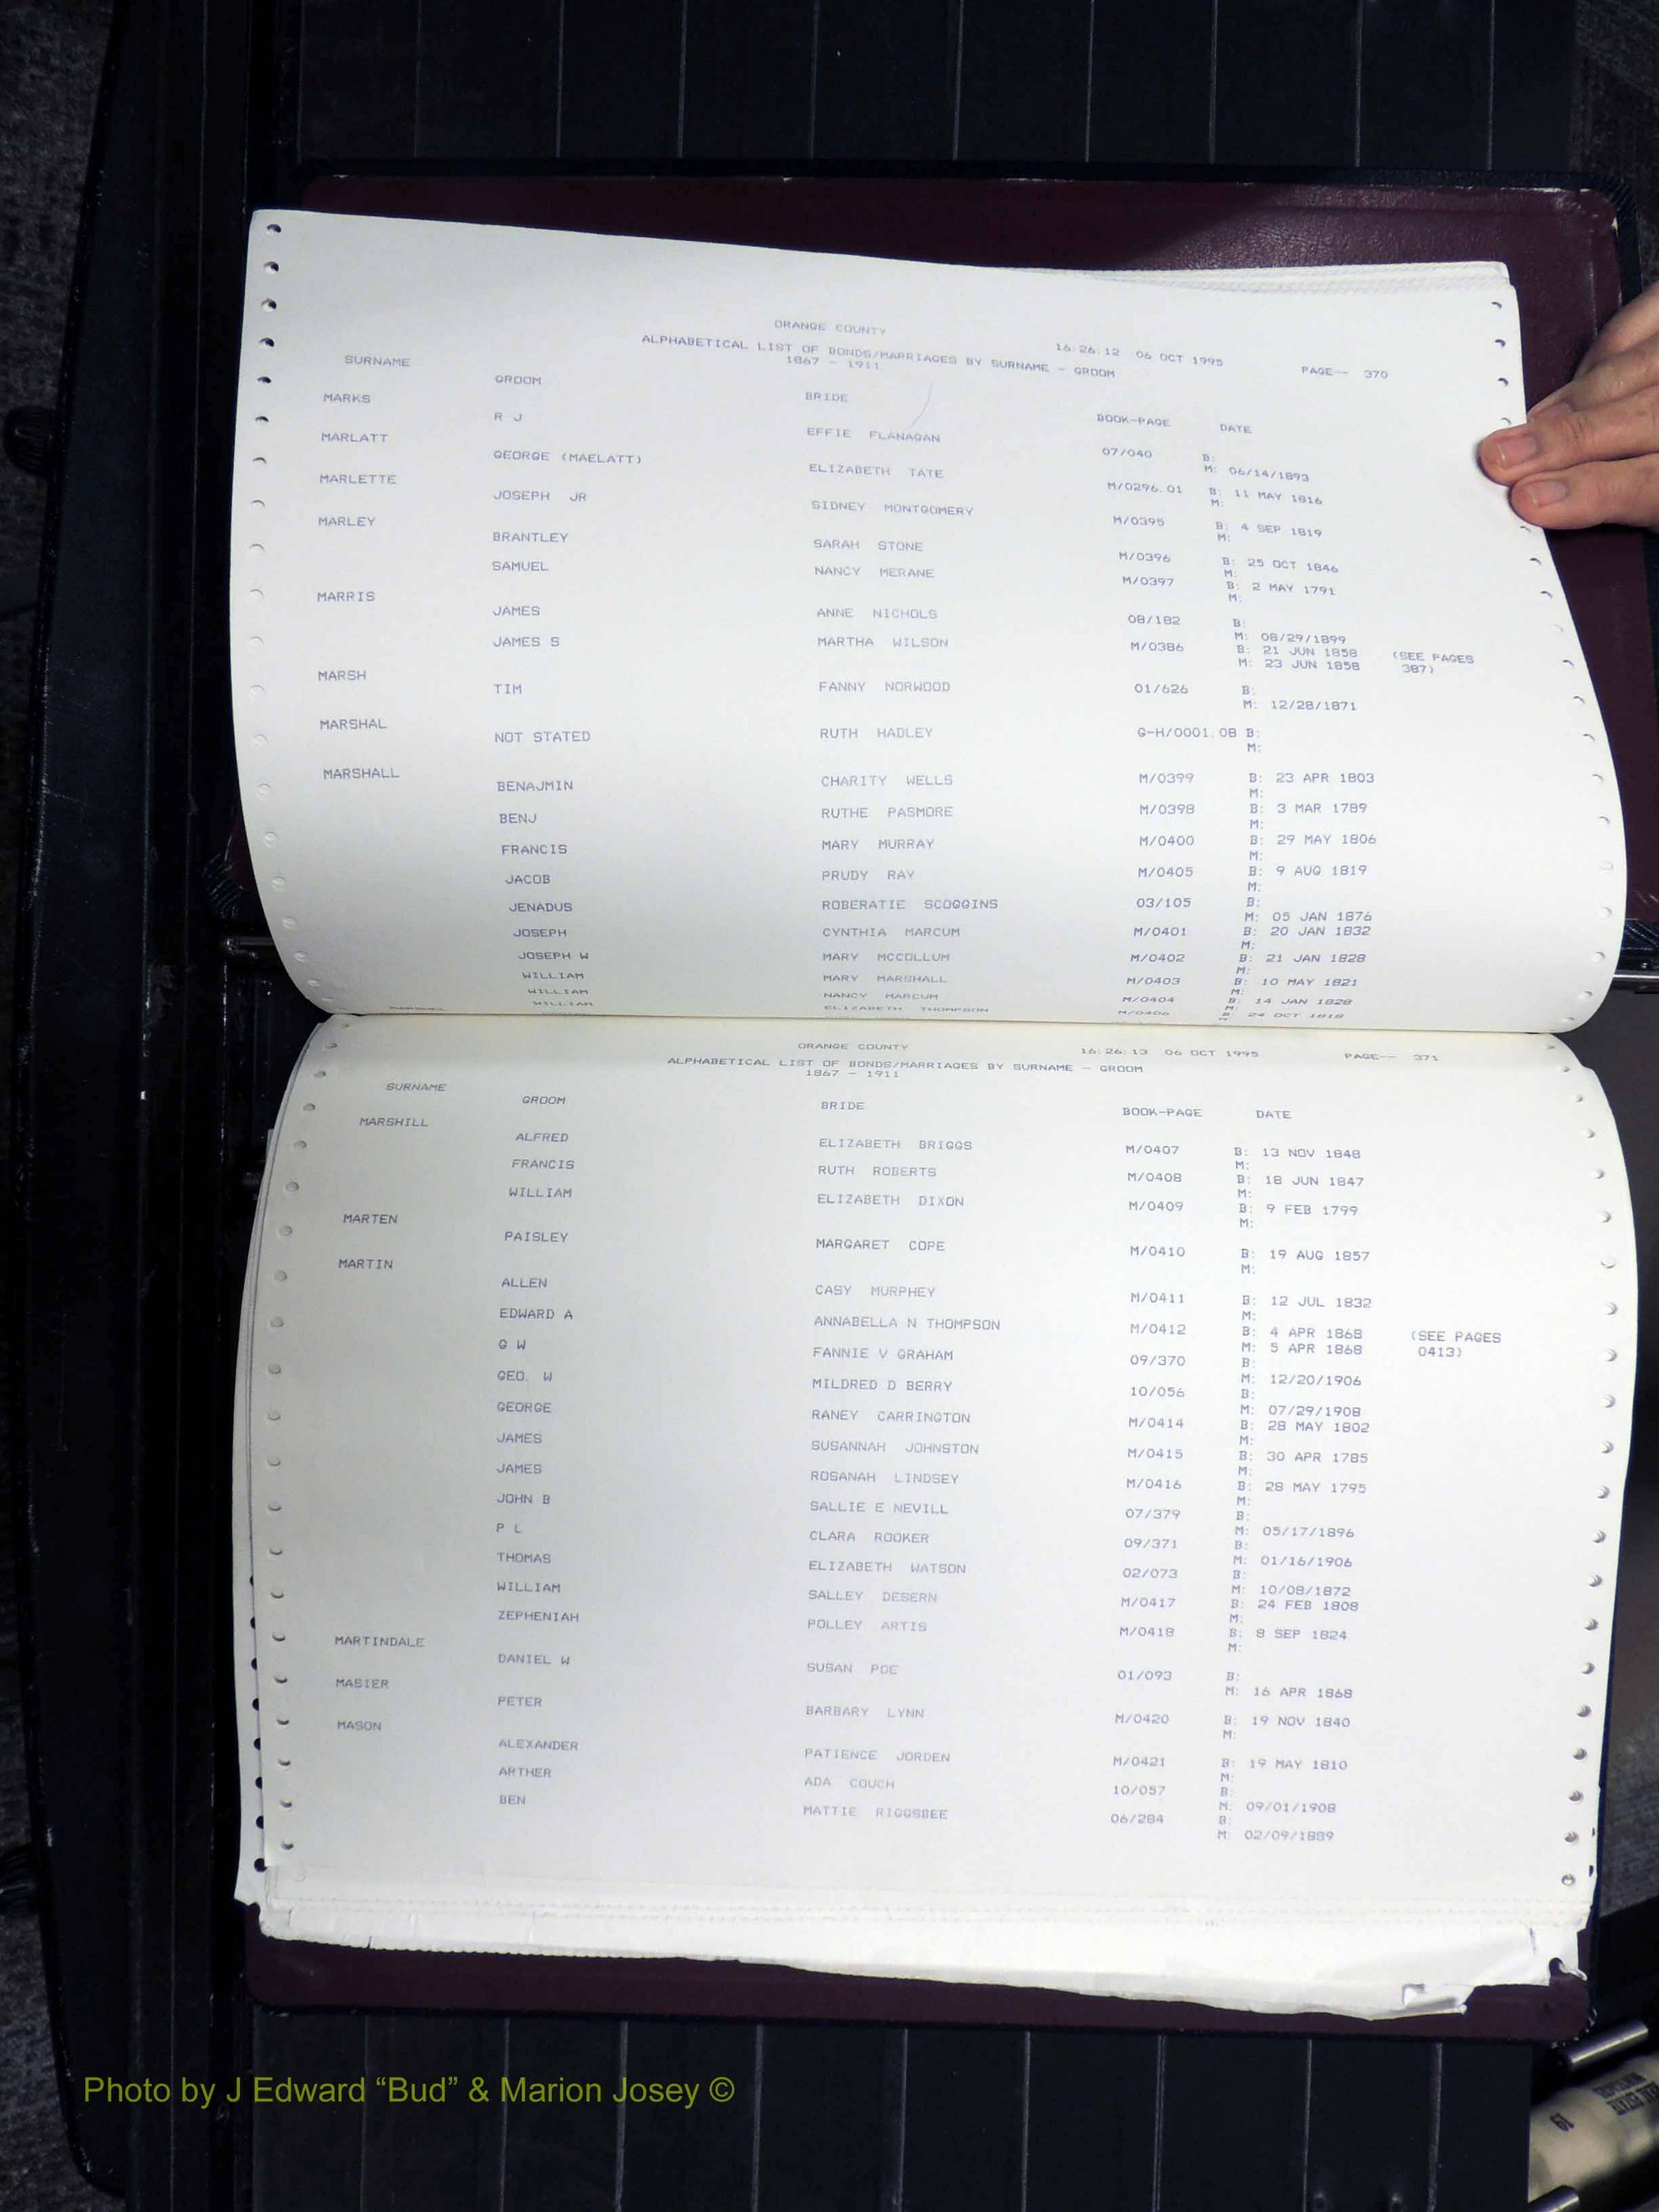 ORANGE COUNTY 16:26:12 06 OCT 1995 PAGE-- 370
ALPHABETICAL LIST OF BONDS/MARRIAGES BY SURNAME - GROOM
1867 - 1911
SURNAME GROOM BRIDE BOOK-PAGE DATE
MARKS
R J EFFIE FLANAGAN 07/040 B:
M: 06/14/1893
MARLATT
GEORGE (MAELATT) ELIZABETH TATE M/0296.01 B: 11 MAY 1816
M:
MARLETTE
JOSEPH JR SIDNEY MONTGOMERY M/0395 B: 4 SEP 1819
M:
MARLEY
BRANTLEY SARAH STONE M/0396 B: 25 OCT 1846
M:
SAMUEL NANCY MERANE M/0397 B: 2 MAY 1791
M:
MARRIS
JAMES ANNE NICHOLS 08/182 B:
M: 08/29/1899
JAMES S MARTHA WILSON M/0386 B: 21 JUN 1858 (SEE PAGES
M: 23 JUN 1858 387)
MARSH
TIM FANNY NORWOOD 01/626 B:
M: 12/28/1871
MARSHAL
NOT STATED RUTH HADLEY G-H/0001.08 B:
M:
MARSHALL
BENAJMIN CHARITY WELLS M/0399 B: 23 APR 1803
M:
BENJ RUTHE PASMORE M/0398 B: 3 MAR 1789
M:
FRANCIS MARY MURRAY M/0400 B: 29 MAY 1806
M:
JACOB PRUDY RAY M/0405 B: 9 AUG 1819
M:
JENADUS ROBERATIE SCOGGINS 03/105 B:
M: 05 JAN 1876
JOSEPH CYNTHIA MARCUM M/0401 B: 20 JAN 1832
M:
JOSEPH W MARY MCCOLLUM M/0402 B: 21 JAN 1828
M:
WILLIAM MARY MARSHALL M/0403 B: 10 MAY 1821
M:
WILLIAM NANCY MARCUM M/0404 B: 14 JAN 1828
M:
WILLIAM ELIZABETH THOMPSON M/0406 B: 24 OCT 1818
ORANGE COUNTY 16:26:13 06 OCT 1995 PAGE-- 371
ALPHABETICAL LIST OF BONDS/MARRIAGES BY SURNAME - GROOM
1867 - 1911
SURNAME GROOM BRIDE BOOK-PAGE DATE
MARSHILL
ALFRED ELIZABETH BRIGGS M/0407 B: 13 NOV 1848
M:
FRANCIS RUTH ROBERTS M/0408 B: 18 JUN 1847
M:
WILLIAM ELIZABETH DIXON M/0409 B: 9 FEB 1799
M:
MARTEN
PAISLEY MARGARET COPE M/0410 B: 19 AUG 1857
M:
MARTIN
ALLEN CASY MURPHEY M/0411 B: 12 JUL 1832
M:
EDWARD A ANNABELLA N THOMPSON M/0412 B: 4 APR 1868 (SEE PAGES
M: 5 APR 1868 0413)
G W FANNIE V GRAHAM 09/370 B:
M: 12/20/1906
GEO. W MILDRED D BERRY 10/056 B:
M: 07/29/1908
GEORGE RANEY CARRINGTON M/0414 B: 28 MAY 1802
M:
JAMES SUSANNAH JOHNSTON M/0415 B: 30 APR 1785
M:
JAMES ROSANAH LINDSEY M/0416 B: 28 MAY 1795
M:
JOHN B SALLIE E NEVILL 07/379 B:
M: 05/17/1896
P L CLARA ROOKER 09/371 B:
M: 01/16/1906
THOMAS ELIZABETH WATSON 02/073 B:
M: 10/08/1872
WILLIAM SALLEY DESERN M/0417 B: 24 FEB 1808
M:
ZEPHENIAH POLLEY ARTIS M/0418 B: 8 SEP 1824
M:
MARTINDALE
DANIEL W SUSAN POE 01/093 B:
M: 16 APR 1868
MASIER
PETER BARBARY LYNN M/0420 B: 19 NOV 1840
M:
MASON
ALEXANDER PATIENCE JORDEN M/0421 B: 19 MAY 1810
M:
ARTHER ADA COUCH 10/057 B:
M: 09/01/1908
BEN MATTIE RIGGSBEE 06/284 B:
M: 02/09/1889
Photo by J Edward “Bud” & Marion Josey ©